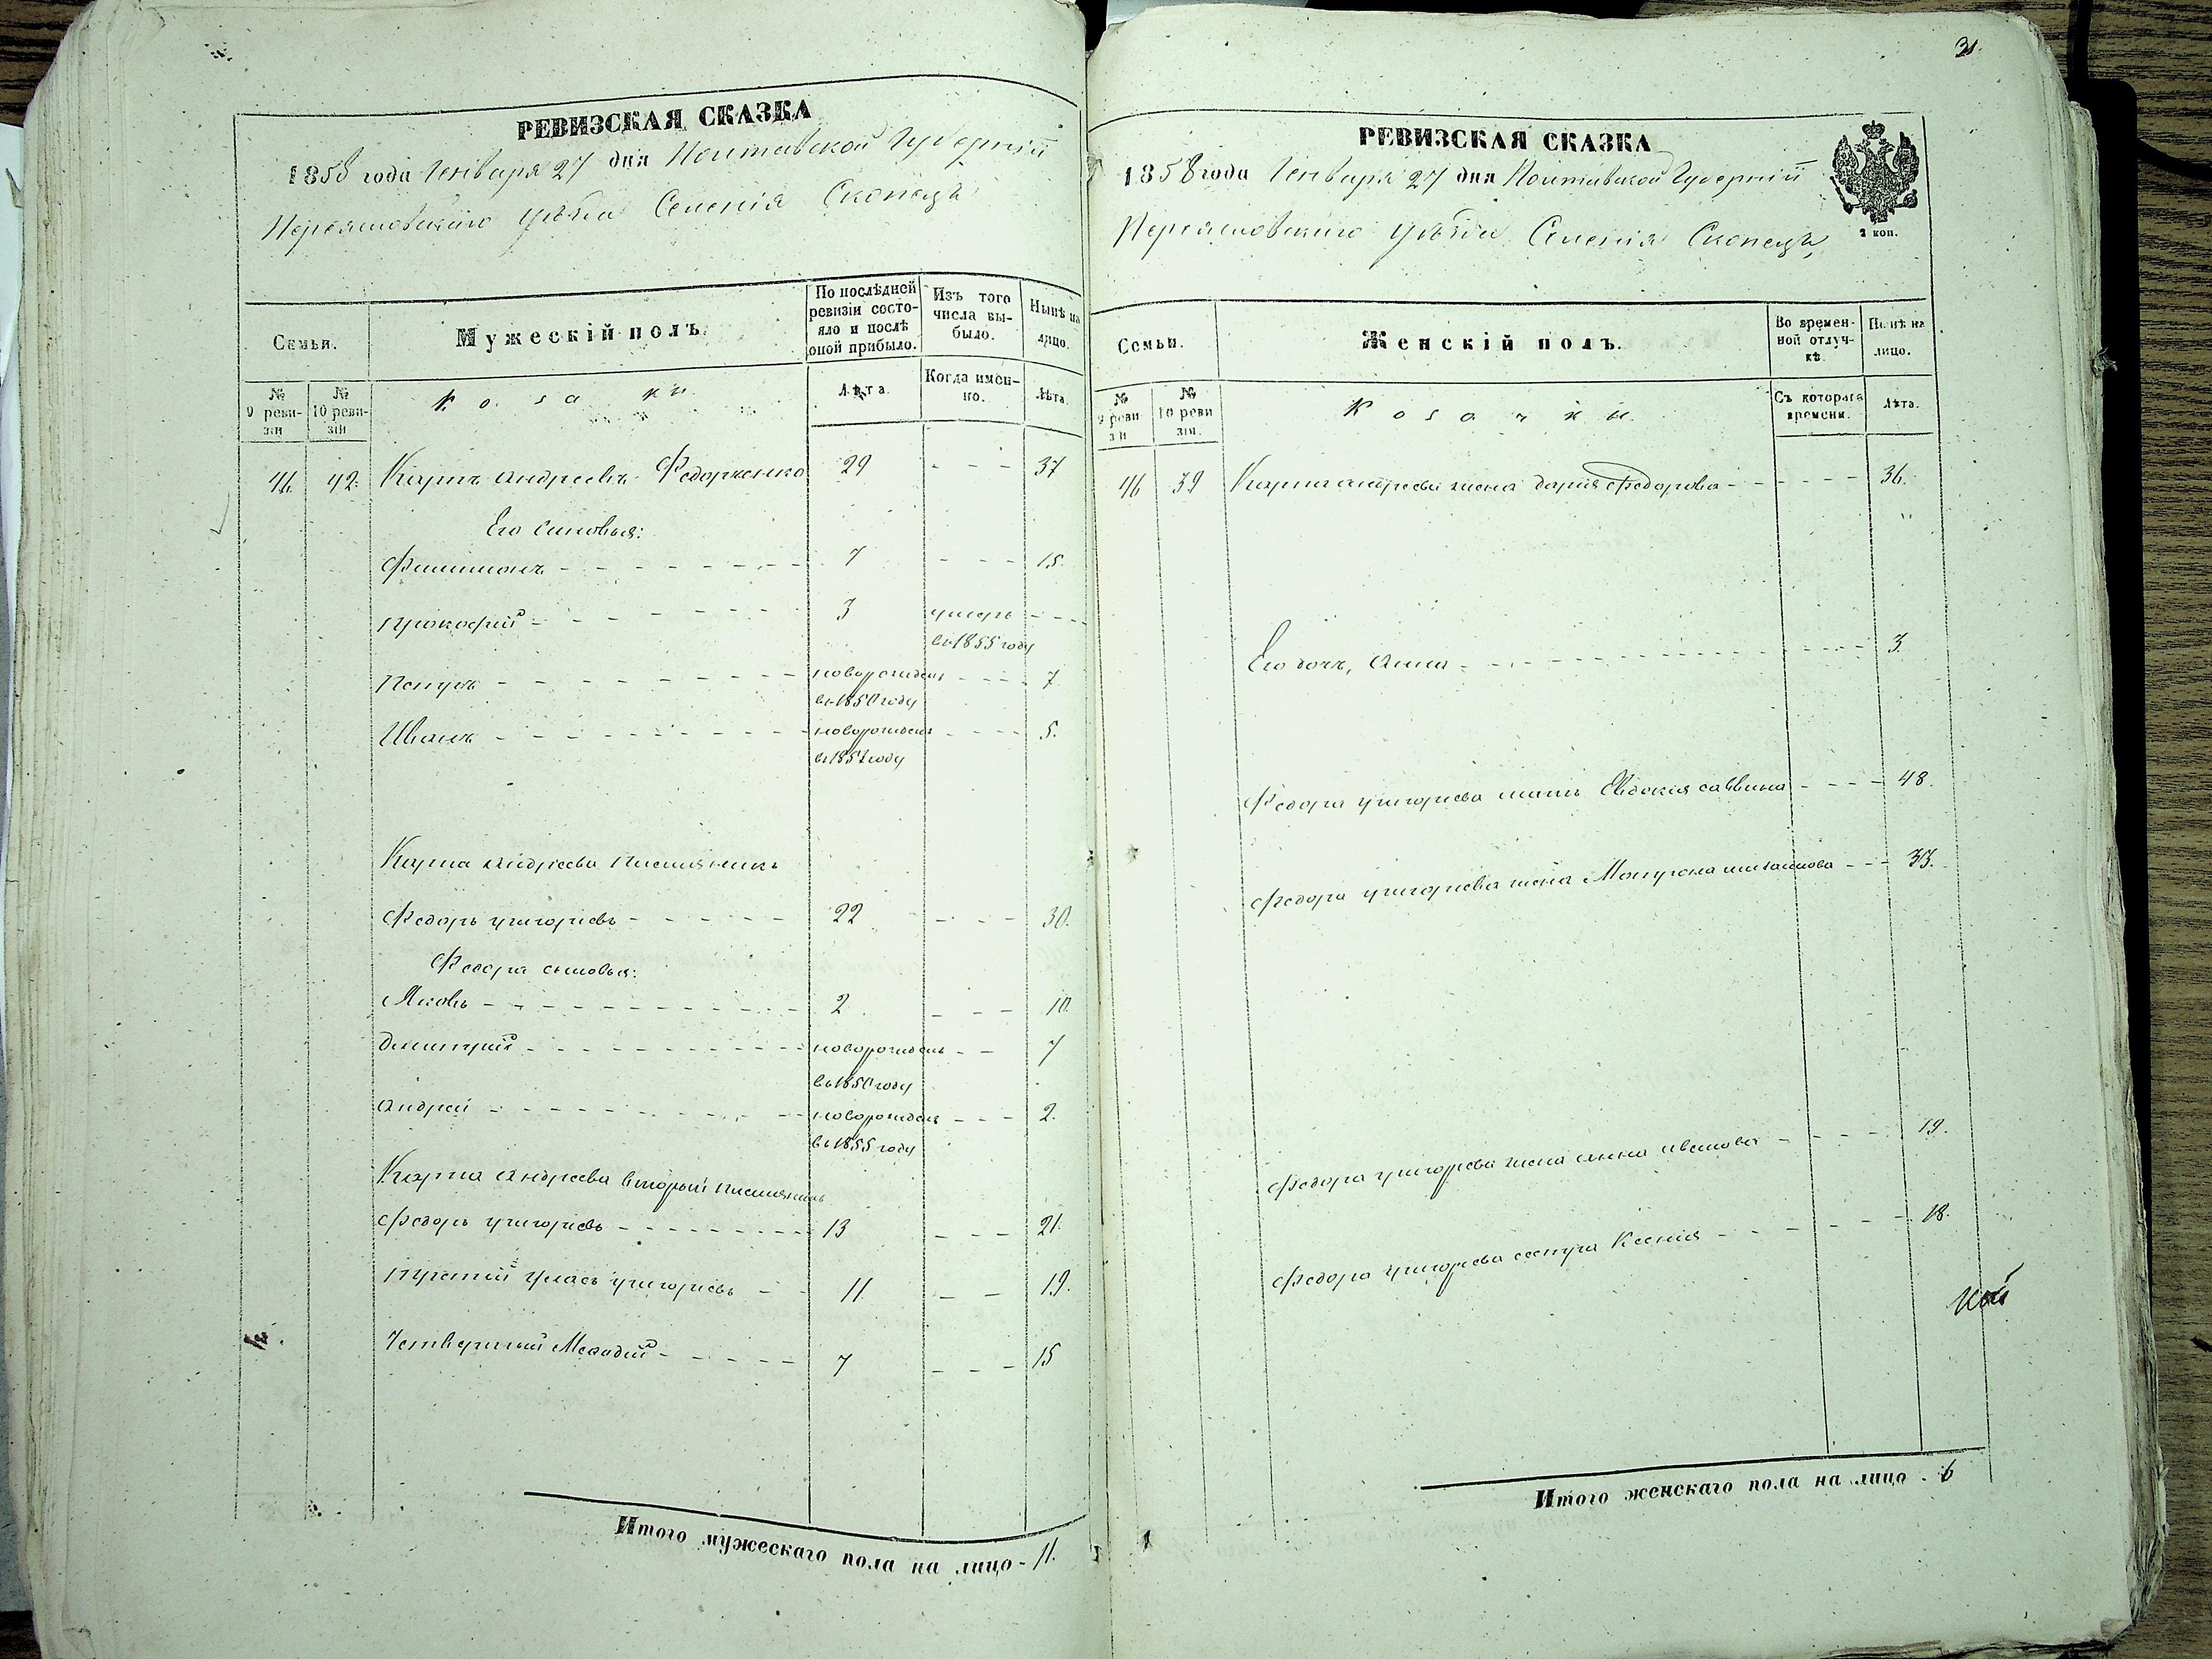 РЕВИЗСКАЯ СКАЗКА
1858 года Генваря 27 дня Полтавской Губерніи
Переяславскаго уѣзда Селенія Скопецъ
Семьи.
Мужескій полъ.
По послѣдней ревизіи состояло и послѣ оной прибыло.
Изъ того числа выбыло.
Нынѣ на лицо.
№ 9 ревизіи
№ 10 ревизіи
Козаки
Лѣта.
Когда именно.
Лѣта.
46. 42. Карпъ Андреевъ Федорченко 29 - - - 37
Его Сыновья:
Филимонъ 7 - - - 15.
Прокофій 3 умеръ - - -
въ 1855 году
Петръ новорожденъ - - - 7.
въ 1850 году
Иванъ новорожденъ - - - 5.
въ 1852 году
Карпа Андреева племянникъ
Федоръ Григорьевъ 22 - - - 30.
Федора сыновья:
Яковъ 2 - - - 10.
Дмитрій новорожденъ - - 7
въ 1850 году
Андрей новорожденъ - - - 2.
въ 1855 году
Карпа Андреева вторый племянникъ
Федоръ Григорьевъ 13 - - - 21.
третій Григорьевъ 11. - - 19.
Четвертый 7 - - - 15
Итого мужескаго пола на лицо - 11.
31.
РЕВИЗСКАЯ СКАЗКА
1858 года Генваря 27 дня Полтавской Губерніи
Переяславскаго уѣзда Селенія Скопецъ,
2 коп.
Семьи.
Женскій полъ.
Во временной отлучкѣ.
Нынѣ на лицо.
№ 9 ревизіи
№ 10 ревизіи.
Козачки
Съ котораго времени.
Лѣта.
46 39 Карпа Андреева жена Дарія Федорова - - - 36.
Его дочь, Анна - - - 3.
Федора Григорьева мать Евдокія Саввина - - - 48.
Федора Григорьева жена - - - 33.
Федора Григорьева жена Анна Иванова - - - 19.
Федора Григорьева сестра Ксенія - - - 18.
Итого женскаго пола на лицо - 6